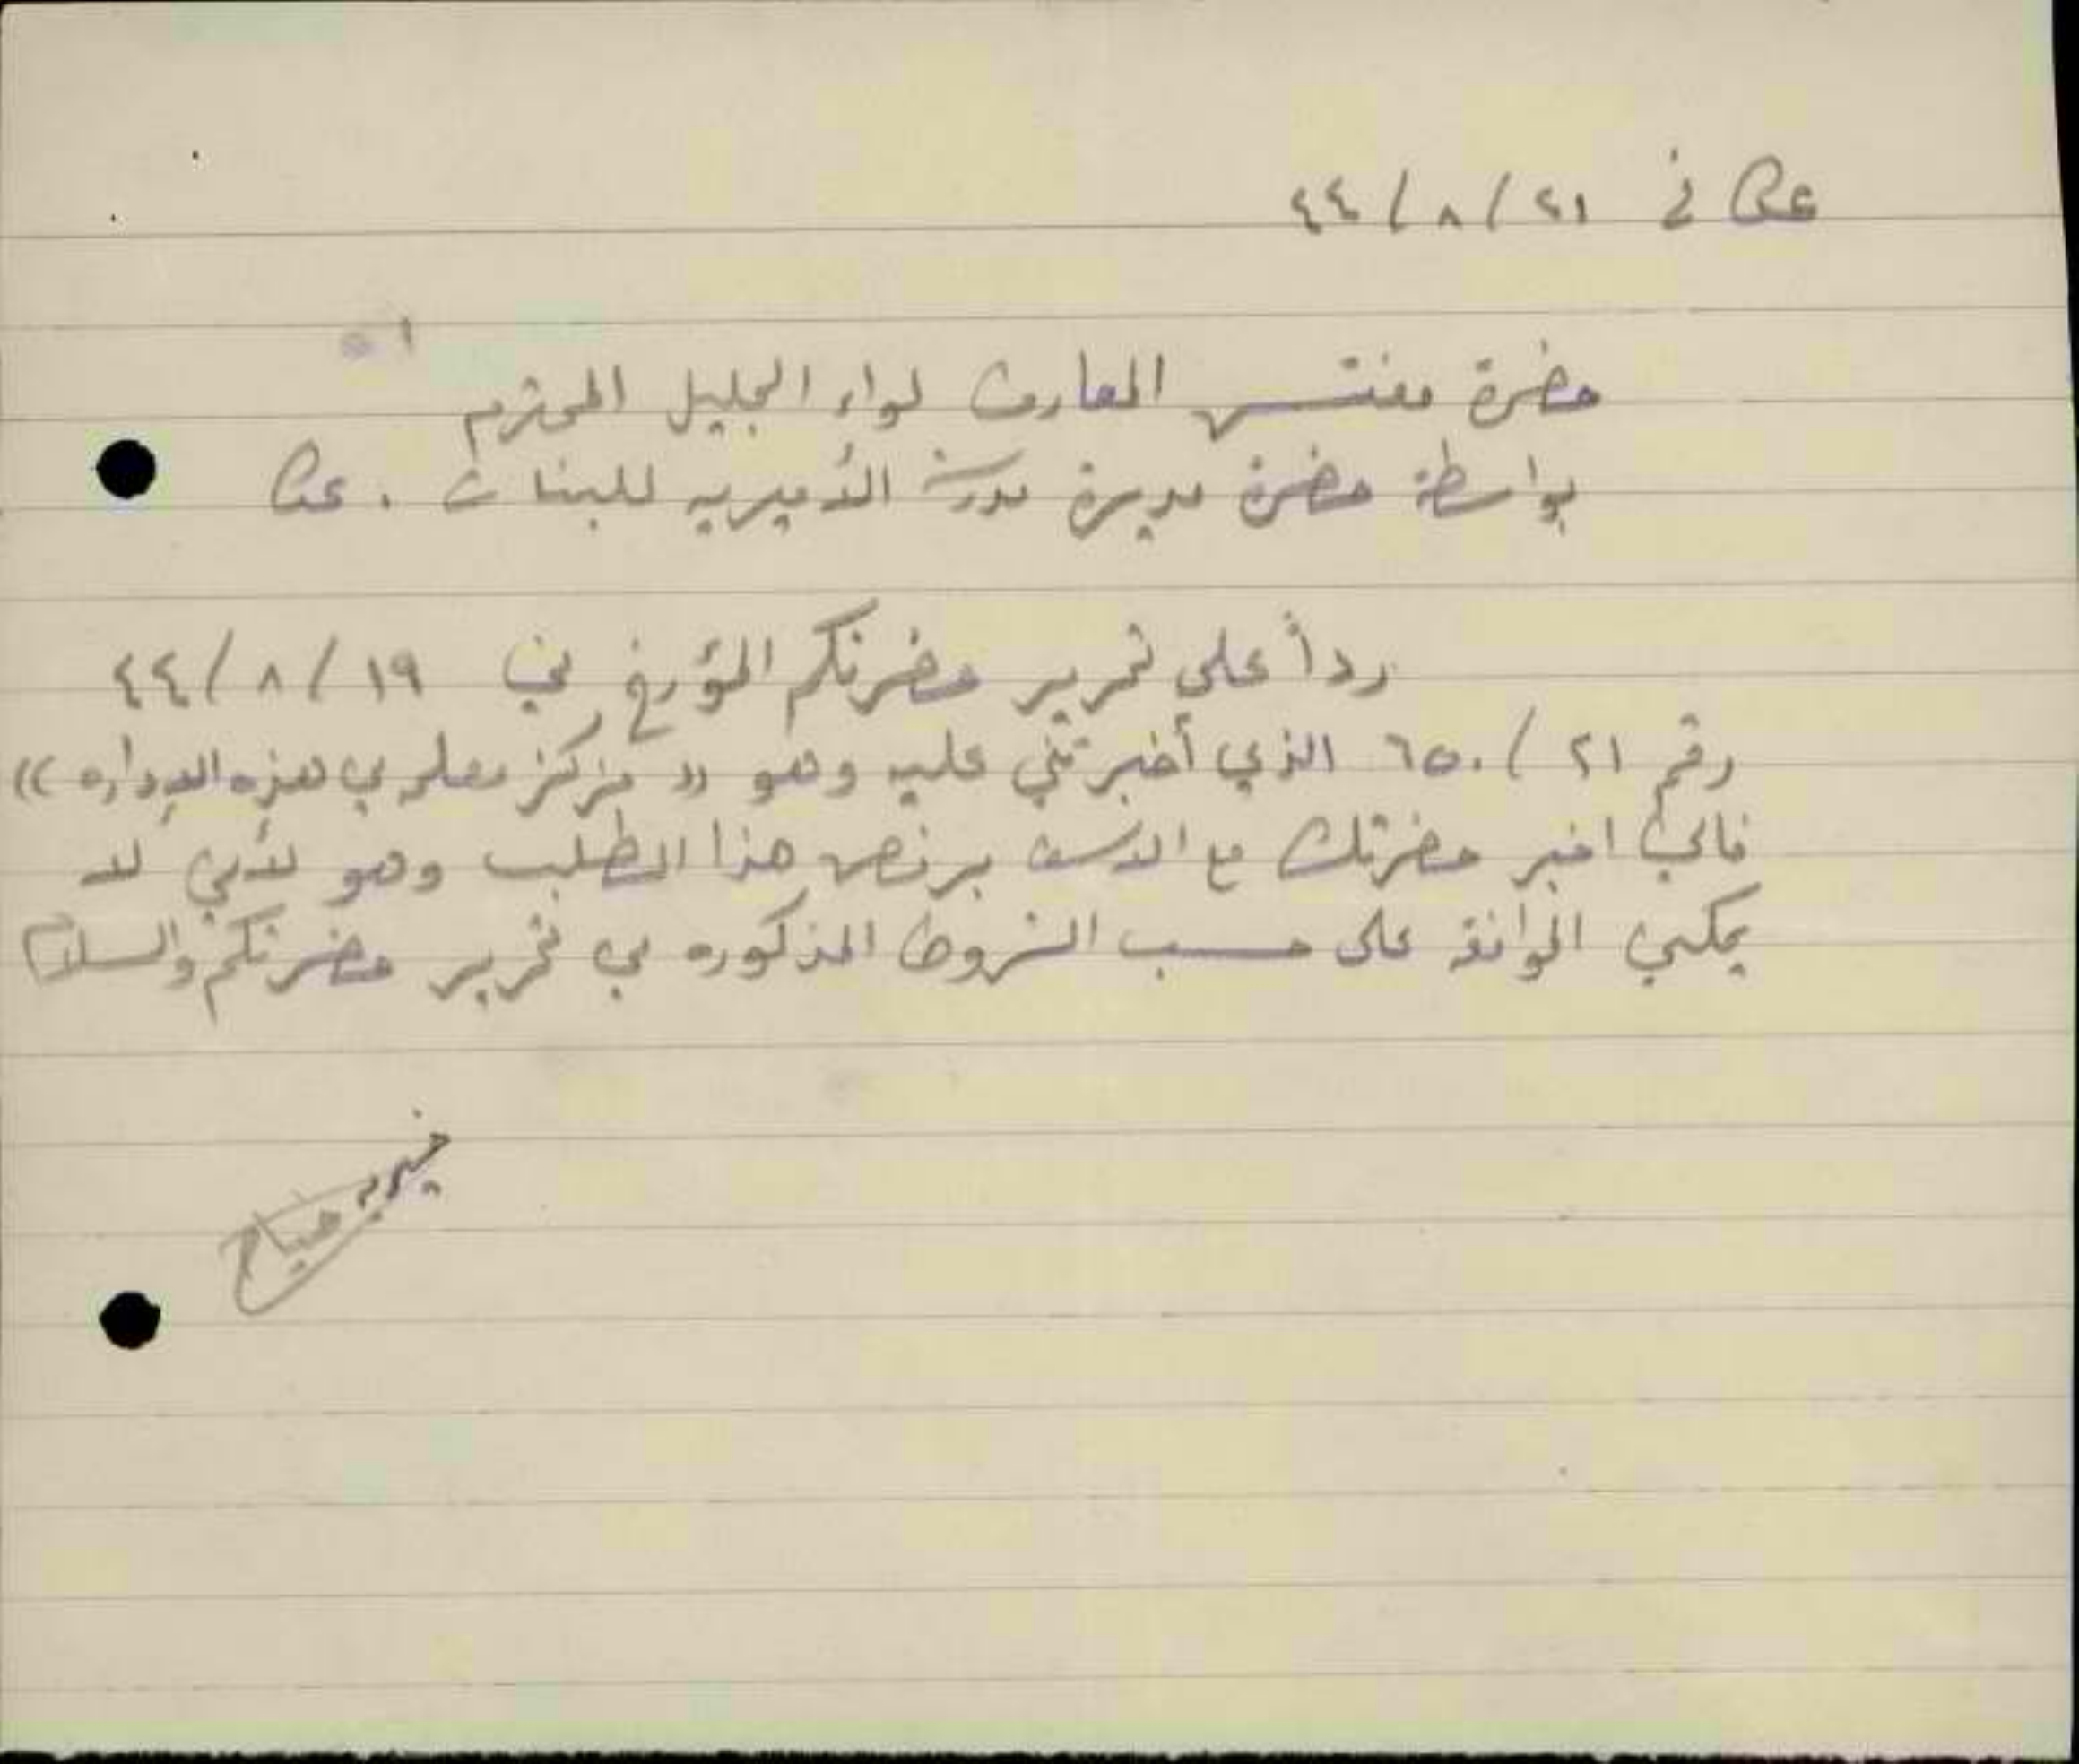 عكا في ٢١ / ٨ / ٤٤
حضرة مفتش المعارف لواء الجليل المحترم
بواسطة حضرة مديرة مدرسة الأميريه للبنات . عكا
رداً على تحرير حضرتكم المؤرخ في ١٩ / ٨ / ٤٤
رقم ٢١ / ٦٥٠ الذي أخبرتني عليه وهو « مركز معلمه في هذه الإداره »
فاني اخبر حضرتك مع الاسف برفض هذا الطلب وهو لأني لا
يمكني الموافقه على حسب الشروط المذكوره في تحرير حضرتكم والسلام
خيريه